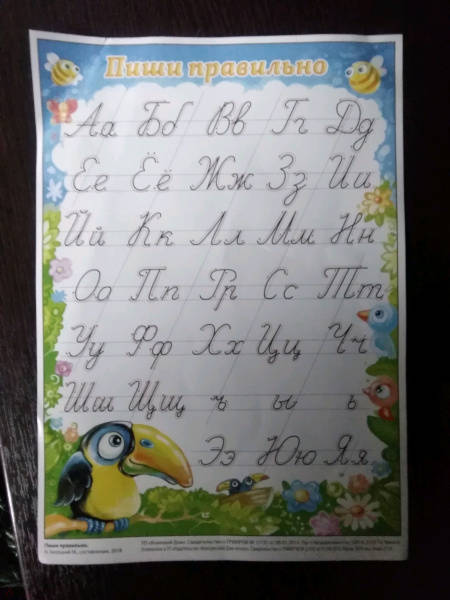 Пиши правильно
Аа Бб Вв Гг Дд
Ее Ёё Жж Зз Ии
Йй Кк Лл Мм Нн
Оо Пп Рр Сс Тт
Уу Фф Хх Цц Чч
Шш Щщ ъ ы ь
Ээ Юю Яя
Пиши правильно.